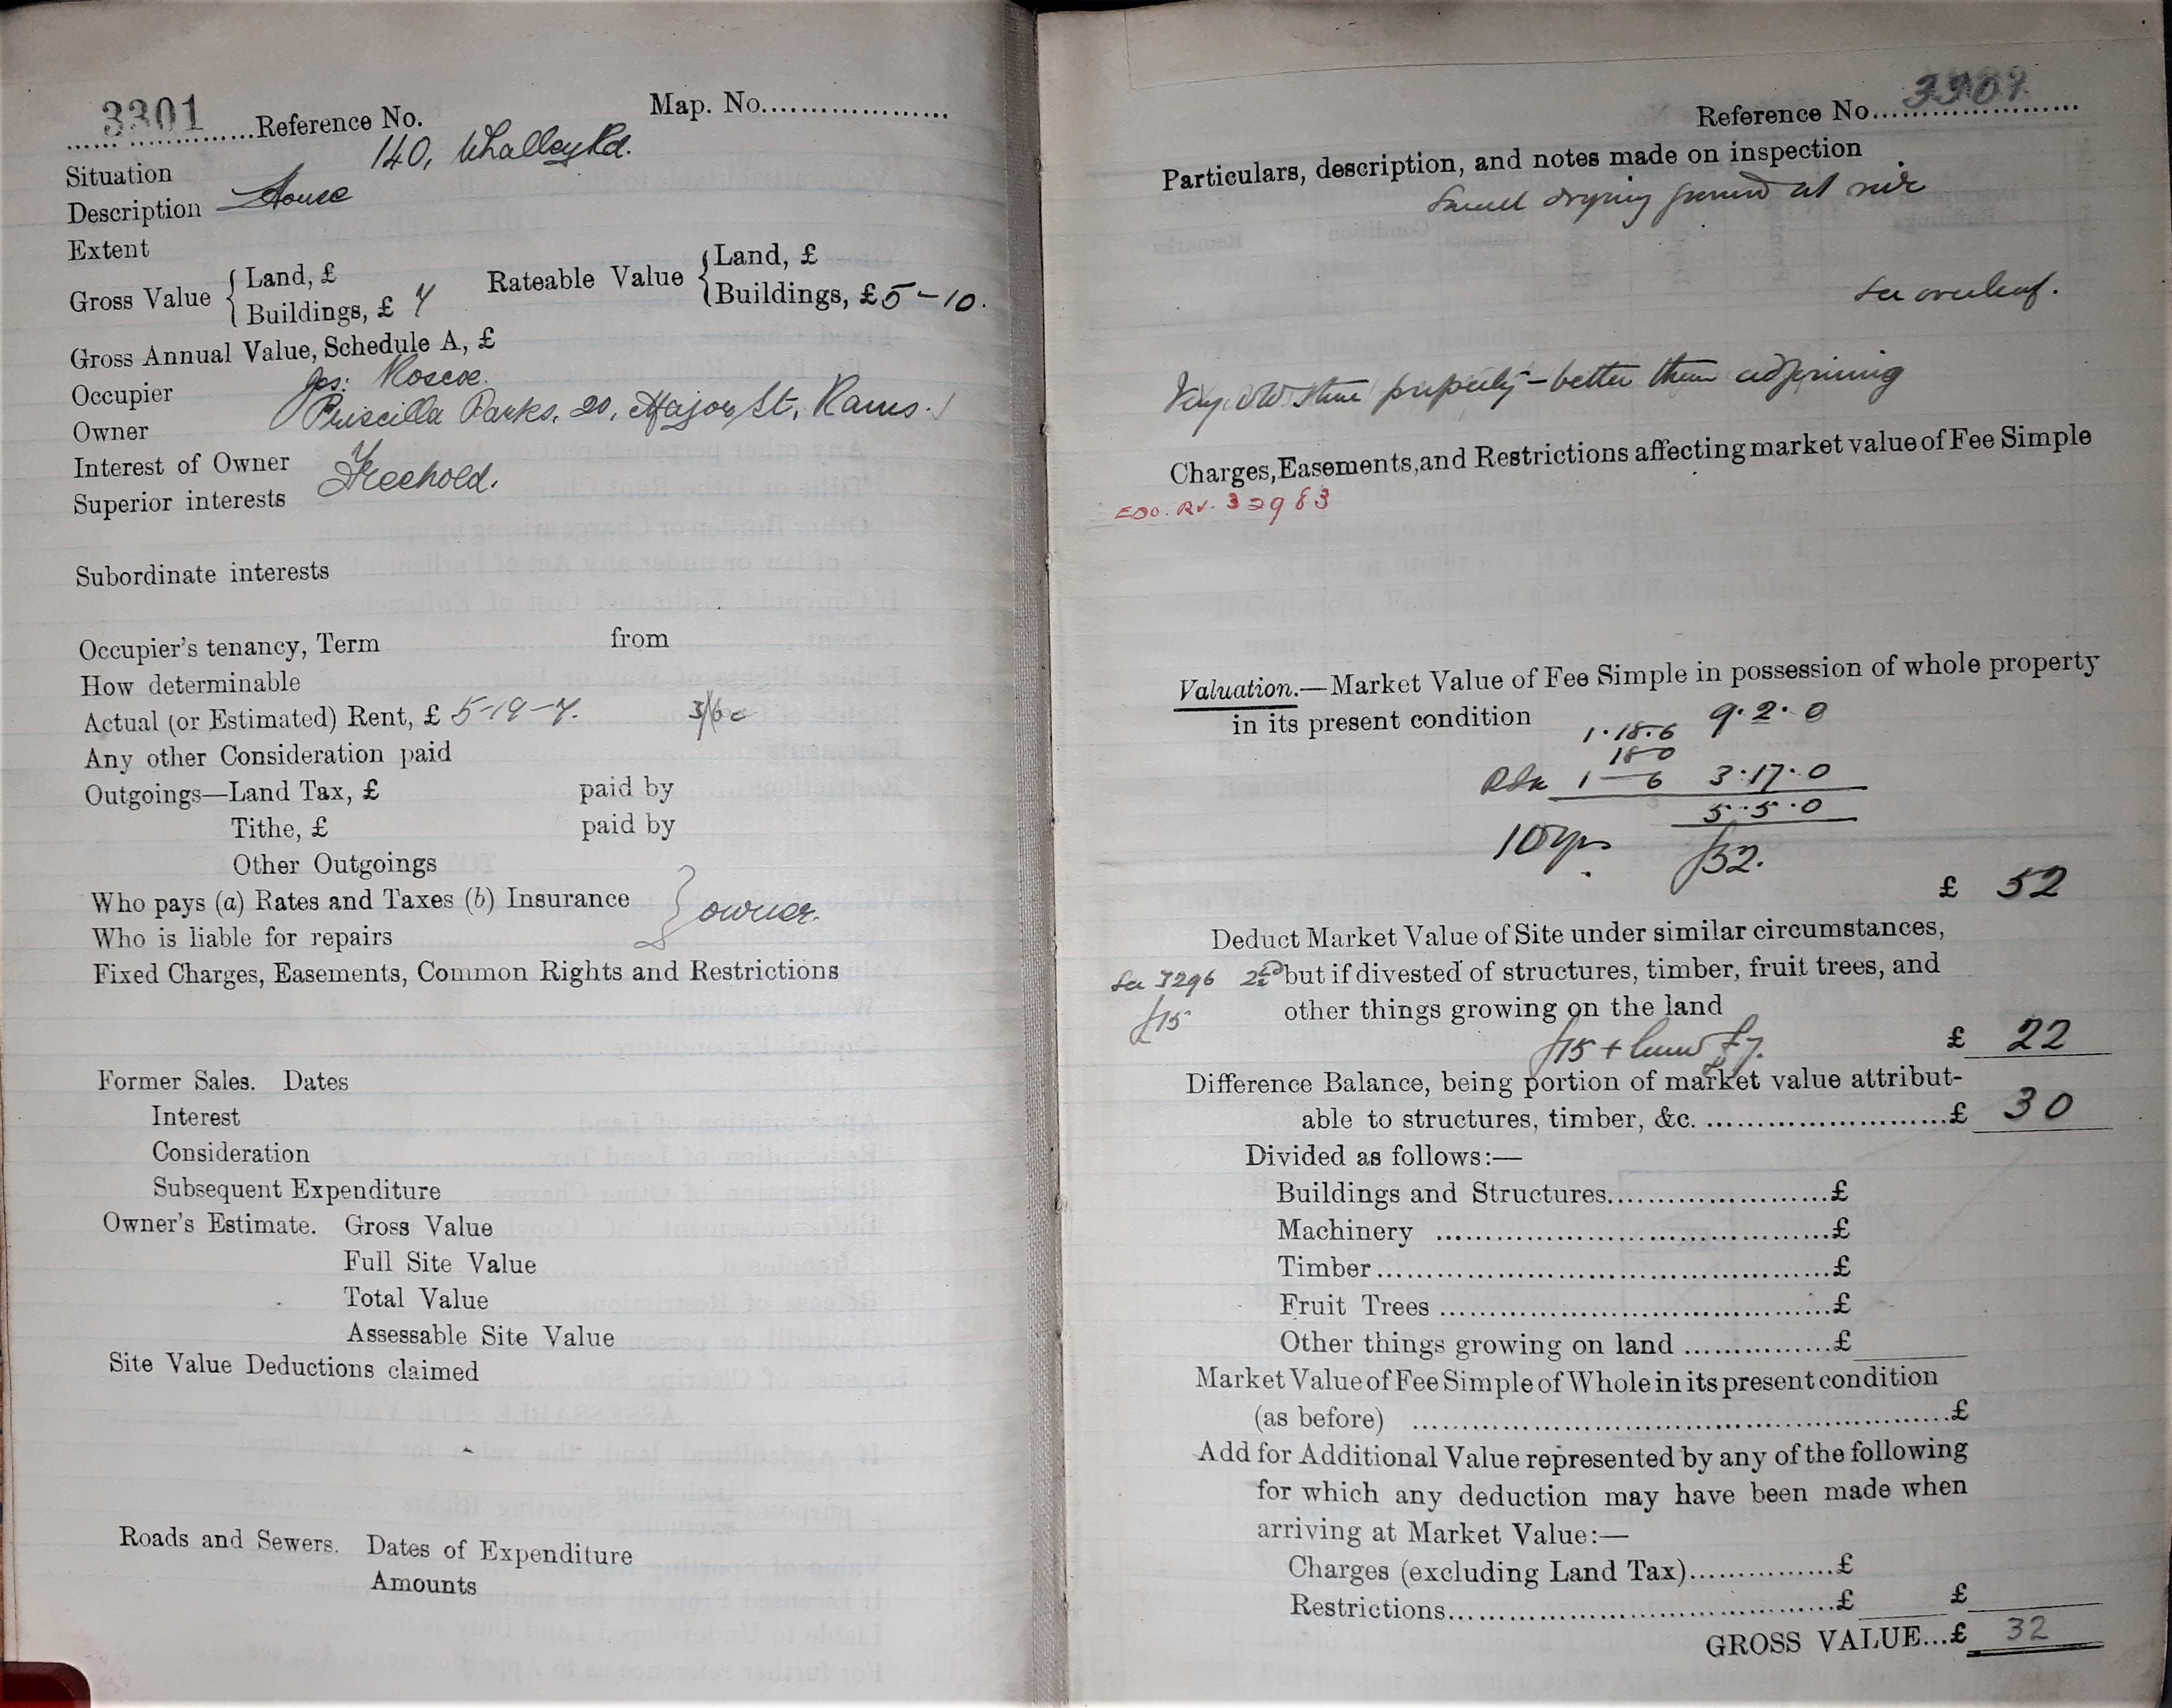 3301 Reference No. Map. No.
Situation 140, Whalley Rd.
Description House
Extent
Gross Value { Land, £ Rateable Value { Land, £
Buildings, £ 7 Buildings, £ 5-10.
Gross Annual Value, Schedule A, £
Occupier Jas: Roscoe.
Owner Priscilla Parks, 20, Major St, Rams.
Interest of Owner Freehold.
Superior interests
Subordinate interests
Occupier's tenancy, Term from
How determinable
Actual (or Estimated) Rent, £ 5-19-7. 3/6
Any other Consideration paid
Outgoings—Land Tax, £ paid by
Tithe, £ paid by
Other Outgoings
Who pays (a) Rates and Taxes (b) Insurance } owner.
Who is liable for repairs
Fixed Charges, Easements, Common Rights and Restrictions
Former Sales. Dates
Interest
Consideration
Subsequent Expenditure
Owner's Estimate. Gross Value
Full Site Value
Total Value
Assessable Site Value
Site Value Deductions claimed
Roads and Sewers. Dates of Expenditure
Amounts
Reference No. 3301
Particulars, description, and notes made on inspection
Small drying ground at side
See overleaf.
Very old stone property - better than adjoining
Charges, Easements, and Restrictions affecting market value of Fee Simple
EDO. RV. 32983
Valuation.—Market Value of Fee Simple in possession of whole property
in its present condition 9.2.0
1.18.6
18-0
1—6 3.17.0
5.5.0
10 yrs £52.
£ 52
Deduct Market Value of Site under similar circumstances,
See 3296 but if divested of structures, timber, fruit trees, and
£15 other things growing on the land
£15 + land £7. £ 22
Difference Balance, being portion of market value attribut-
able to structures, timber, &c. £ 30
Divided as follows:—
Buildings and Structures £
Machinery £
Timber £
Fruit Trees £
Other things growing on land £
Market Value of Fee Simple of Whole in its present condition
(as before) £
Add for Additional Value represented by any of the following
for which any deduction may have been made when
arriving at Market Value:—
Charges (excluding Land Tax) £
Restrictions £ £
GROSS VALUE...£ 32